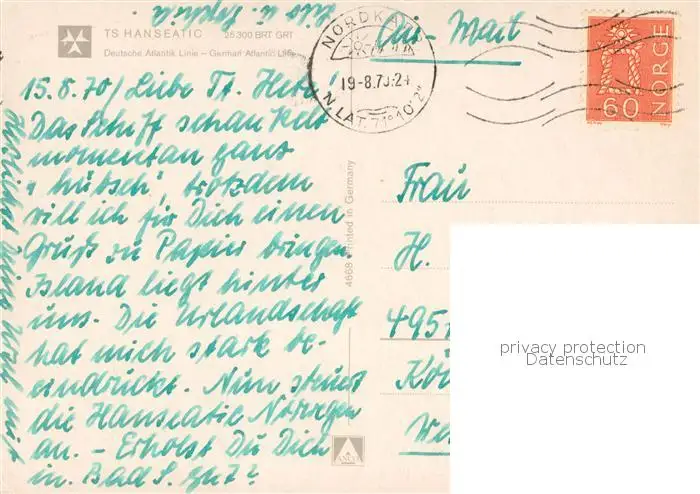 TS HANSEATIC 25300 BRT GRT
Deutsche Atlantik Linie – German Atlantic Line
15.8.70/Liebe Tt. Herta!
Das Schiff schaukelt
momentan ganz
"hübsch", trotzdem
will ich für Dich einen
Gruß zu Papier bringen.
Island liegt hinter
uns. Die Urlandschaft
hat mich stark be-
eindruckt. Nun steuert
die Hanseatic Norwegen
an. – Erholst Du Dich
in Bad S. gut?
4668 Printed in Germany
NORDKAPP
19-8.70-24
N.LAT. 71°10'2"
Air-Mail
NORGE
60
Frau
H.
495
Köl
We
privacy protection
Datenschutz